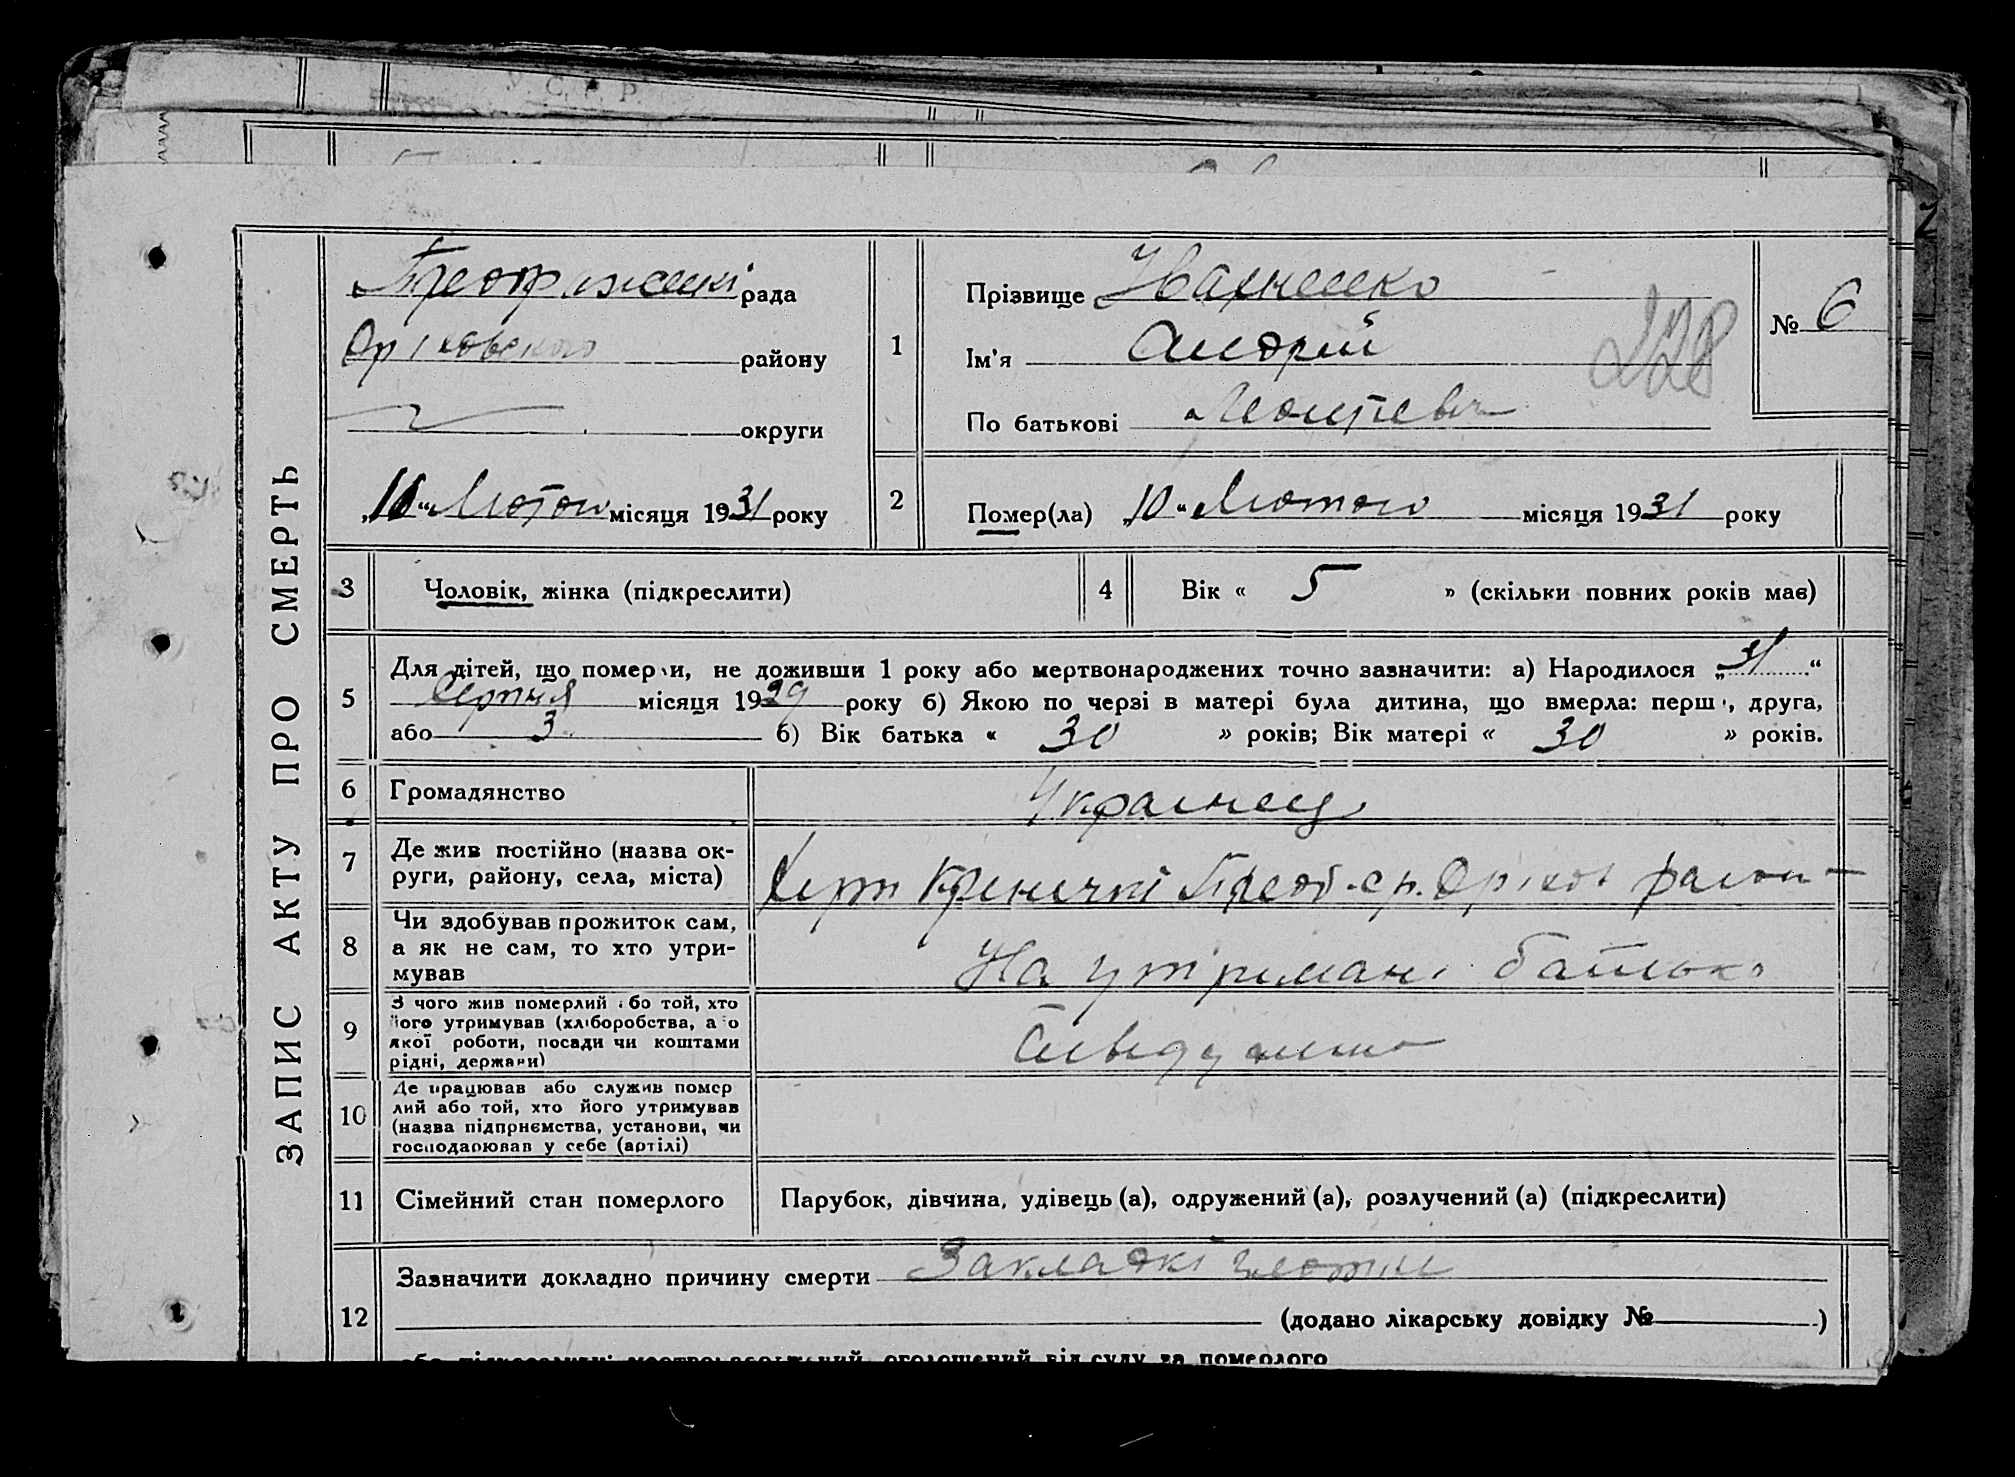 У. С. Р. Р.
ЗАПИС АКТУ ПРО СМЕРТЬ
Преображенські рада
Оріховського району
округи
„10“ Лютого місяця 1931 року
1
Прізвище Івахненко
Ім'я Андрій
По батькові
№ 6
228
2
Помер(ла) „10“ Лютого місяця 1931 року
3
Чоловік, жінка (підкреслити)
4
Вік « 5 » (скільки повних років має)
5
Для дітей, що померли, не доживши 1 року або мертвонароджених точно зазначити: а) Народилося „31“
Серпня місяця 1929 року б) Якою по черзі в матері була дитина, що вмерла: перша, друга,
або 3 б) Вік батька « 30 » років; Вік матері « 30 » років.
6
Громадянство
Украінец
7
Де жив постійно (назва ок-
руги, району, села, міста)
Кринички Преоб. с р. Оріхов район
8
Чи здобував прожиток сам,
а як не сам, то хто утри-
мував
На утримані батька
9
З чого жив померлий або той, хто
його утримував (хліборобства, або
якої роботи, посади чи коштами
рідні, держави)
10
Де працював або служив помер
лий або той, хто його утримував
(назва підприємства, установи, чи
господарював у себе (артілі)
11
Сімейний стан померлого
Парубок, дівчина, удівець (а), одружений (а), розлучений (а) (підкреслити)
12
Зазначити докладно причину смерти Закладкі
(додано лікарську довідку № )
оголошений від суду за померлого